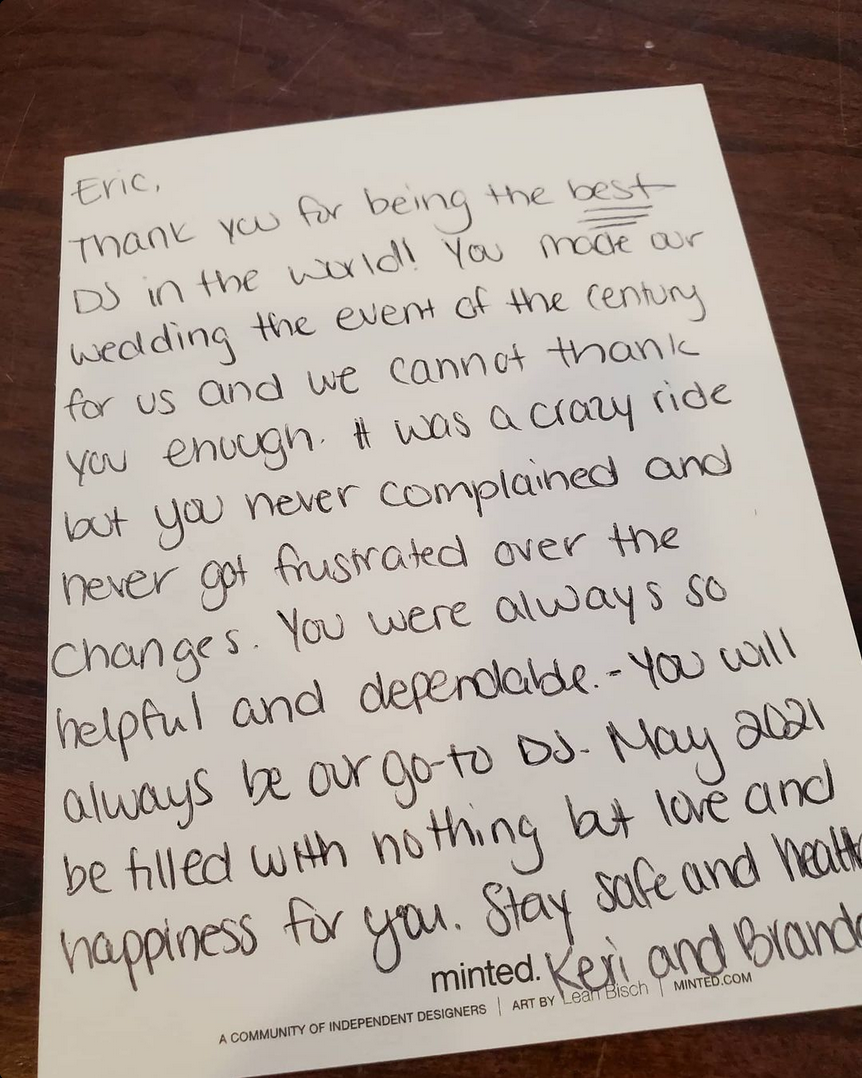 Eric,
Thank you for being the best
DJ in the world! You made our
wedding the event of the century
for us and we cannot thank
you enough. It was a crazy ride
but you never complained and
never got frustrated over the
changes. You were always so
helpful and dependable. - You will
always be our go-to DJ. May 2021
be filled with nothing but love and
happiness for you. Stay safe and
minted. Keri and
A COMMUNITY OF INDEPENDENT DESIGNERS | ART BY Leah Bisch | MINTED.COM